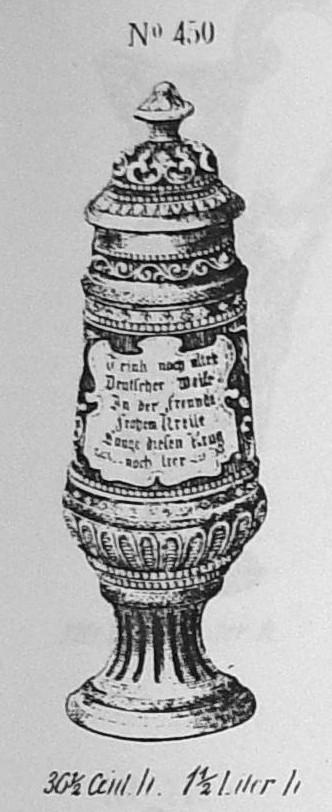 Nº 450
Trink nach alter
Deutscher Weise
In der Freunde
Frohem Kreise
diesen Krug
noch leer
36½ Cent. h. 1½ Liter h